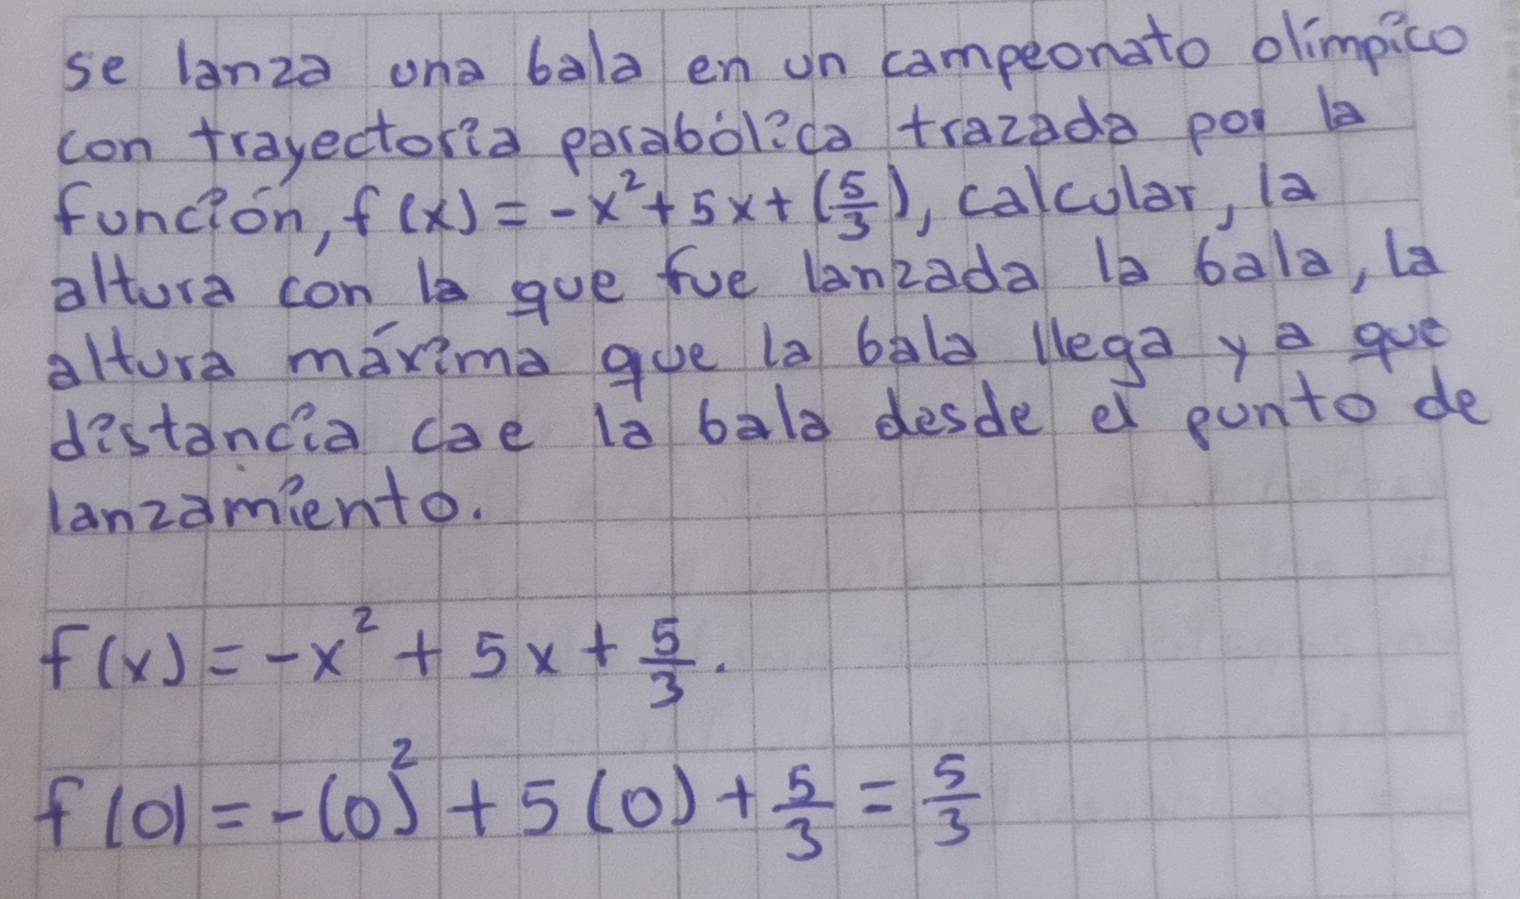 se lanza una bala en un campeonato olímpico
con trayectoria parabólica trazada por la
función, f(x) = -x² + 5x + (5/3), calcular, la
altura con la que fue lanzada la bala, la
altura máxima que la bala llega y a que
distancia cae la bala desde el punto de
lanzamiento.
f(x) = -x² + 5x + 5/3.
f(0) = -(0)² + 5(0) + 5/3 = 5/3